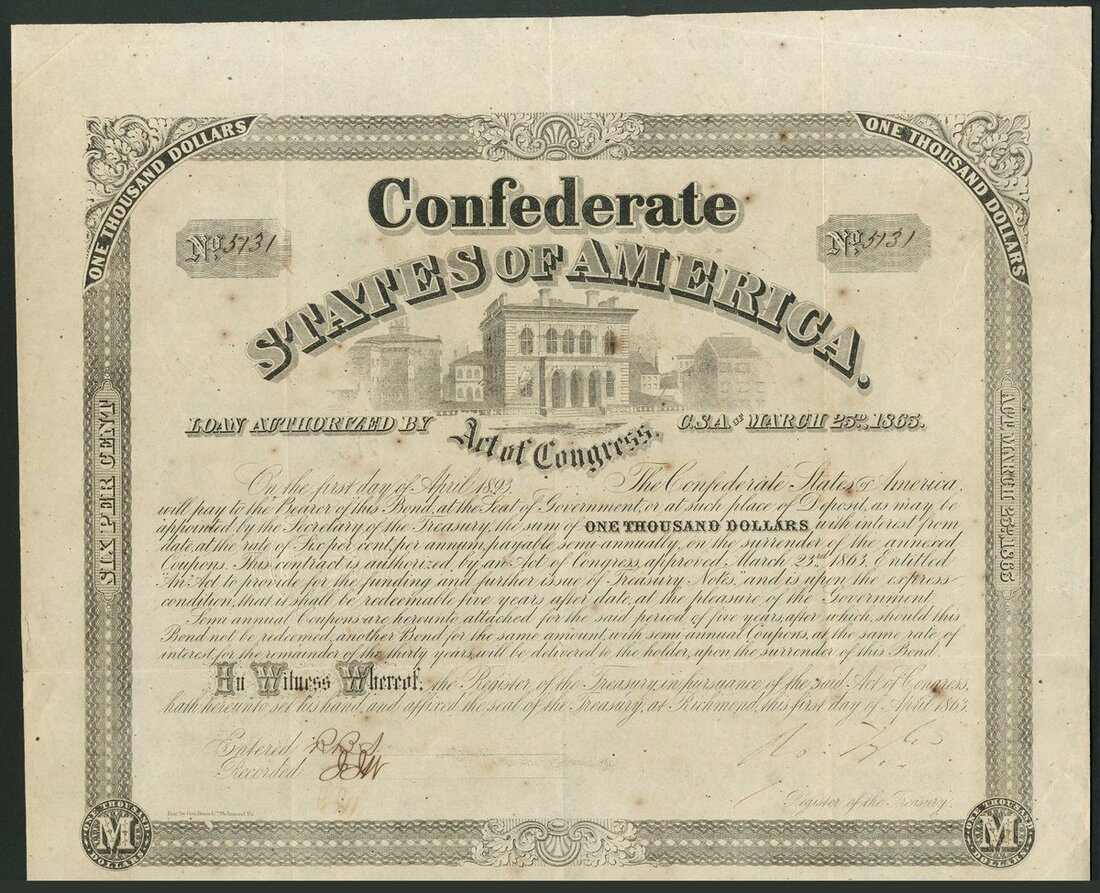 ONE THOUSAND DOLLARS
ONE THOUSAND DOLLARS
Confederate
No. 5131
No. 5131
STATES OF AMERICA.
LOAN AUTHORIZED BY
Act of Congress,
C.S.A. OF MARCH 23D, 1863.
SIX PER CENT
ACT MARCH 23D, 1863
On the first day of April 1893. The Confederate States of America,
will pay to the Bearer of this Bond, at the Seat of Government, or at such place of Deposit, as may be
appointed by the Secretary of the Treasury, the sum of ONE THOUSAND DOLLARS with interest from
date, at the rate of Six per cent, per annum, payable semi-annually, on the surrender of the annexed
Coupons. This contract is authorized by an Act of Congress, approved March 23rd 1863, Entitled
"An Act to provide for the funding and further issue of Treasury Notes, and is upon the express
condition, that it shall be redeemable five years after date, at the pleasure of the Government.
Semi annual Coupons are hereunto attached for the said period of five years, after which, should this
Bond not be redeemed, another Bond for the same amount, with semi annual Coupons, at the same rate of
interest, for the remainder of the thirty years, will be delivered to the holder, upon the surrender of this Bond
In Witness Whereof, the Register of the Treasury, in pursuance of the said Act of Congress,
hath hereunto set his hand, and affixed the seal of the Treasury, at Richmond, this first day of April 1863.
Entered
Recorded
Register of the Treasury.
ONE THOUSAND
M
DOLLARS
ONE THOUSAND
M
DOLLARS